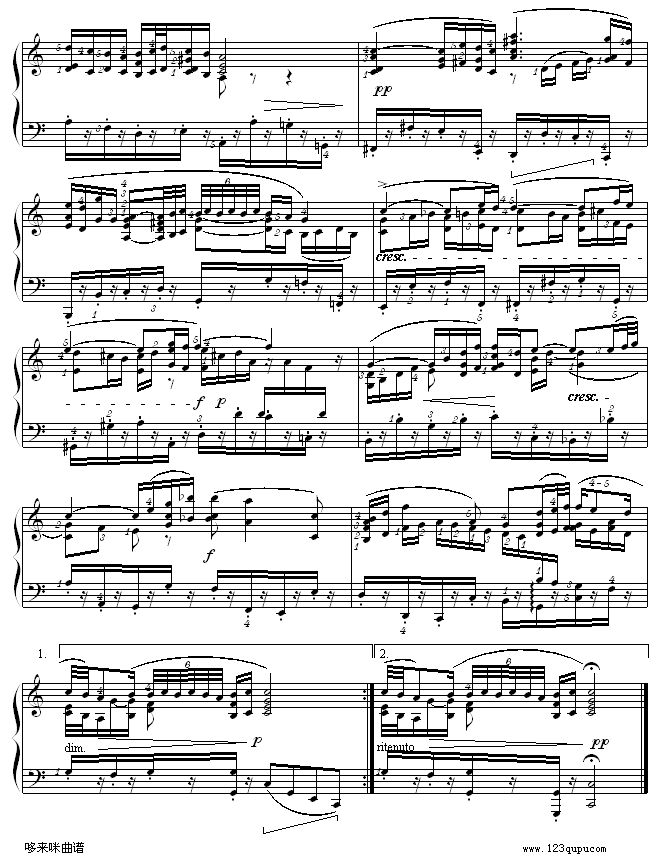 pp
cresc.
f p
cresc.
f
1. 2.
dim. p ritenuto pp
哆来咪曲谱 www.123qupu.com